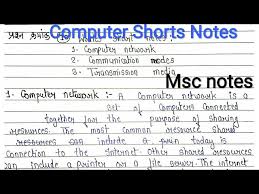 Computer Shorts Notes
प्रश्न
Short Notes :
1. Computer network
2. Communication modes
3. Transmission media
Msc notes
1. Computer network :- A computer network is a
set of computers connected
together for the purpose of sharing
resources. The most common resource shared
today is
connection to the Internet. Other shared resources
can include a printer or a file server. The internet